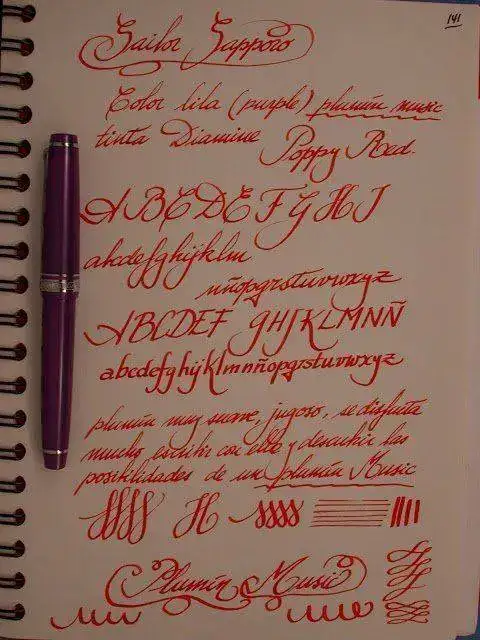 141
Sailor Sapporo
Color lila (purple) plumín music
tinta Diamine Poppy Red.
A B C D E F G H I
abcdefghijklm
nñopqrstuvwxyz
ABCDEF GHJKLMNÑ
abcdefghijklmnñopqrstuvwxyz
plumín muy suave, jugoso, se disfruta
mucho escribir con ella y descubrir las
posibilidades de un plumín Music
H
Plumín Music